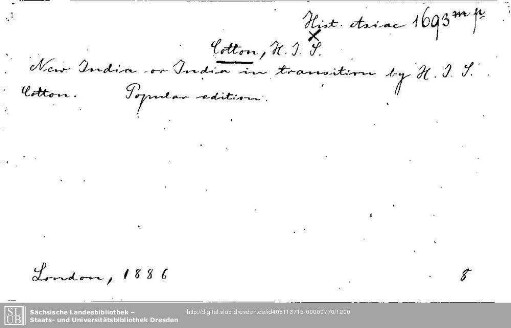 Hist. Asiae 1693 m p
Cotton, H. J. S.
New India or India in transition by H. J. S.
Cotton. Popular edition.
London, 1886 8
SLUB Sächsische Landesbibliothek –
Staats- und Universitätsbibliothek Dresden